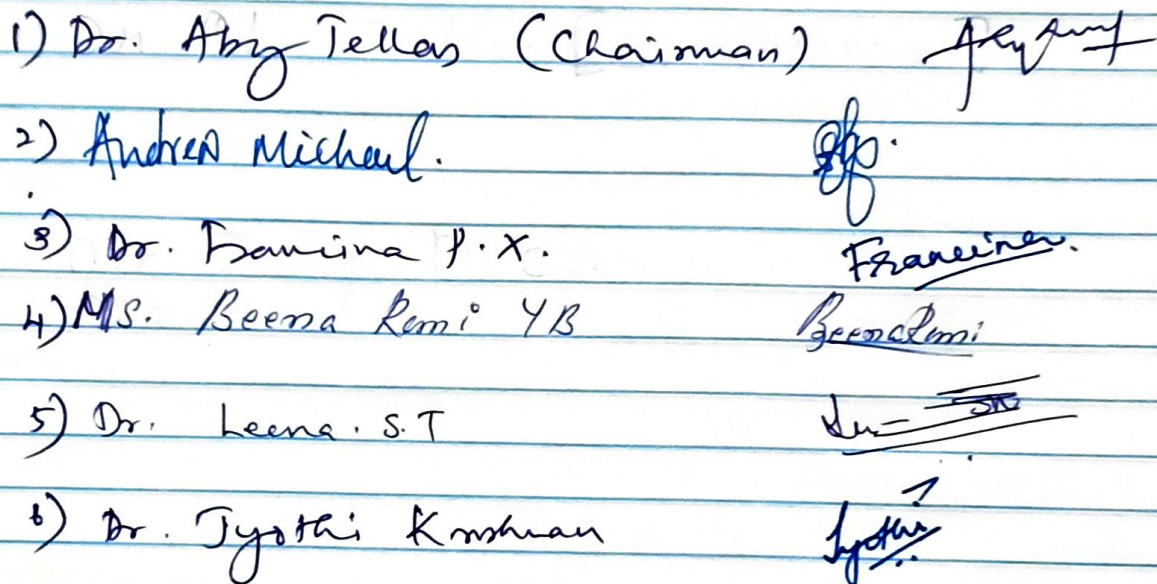 1) Dr. Aby Tellas (Chairman)
2) Andrea Michael.
3) Dr. Francina P.X. Francina.
4) MS. Beena Remi YB BeenaRemi
5) Dr. Leena. S.T
6) Dr. Jyothi Krishnan Jyothi